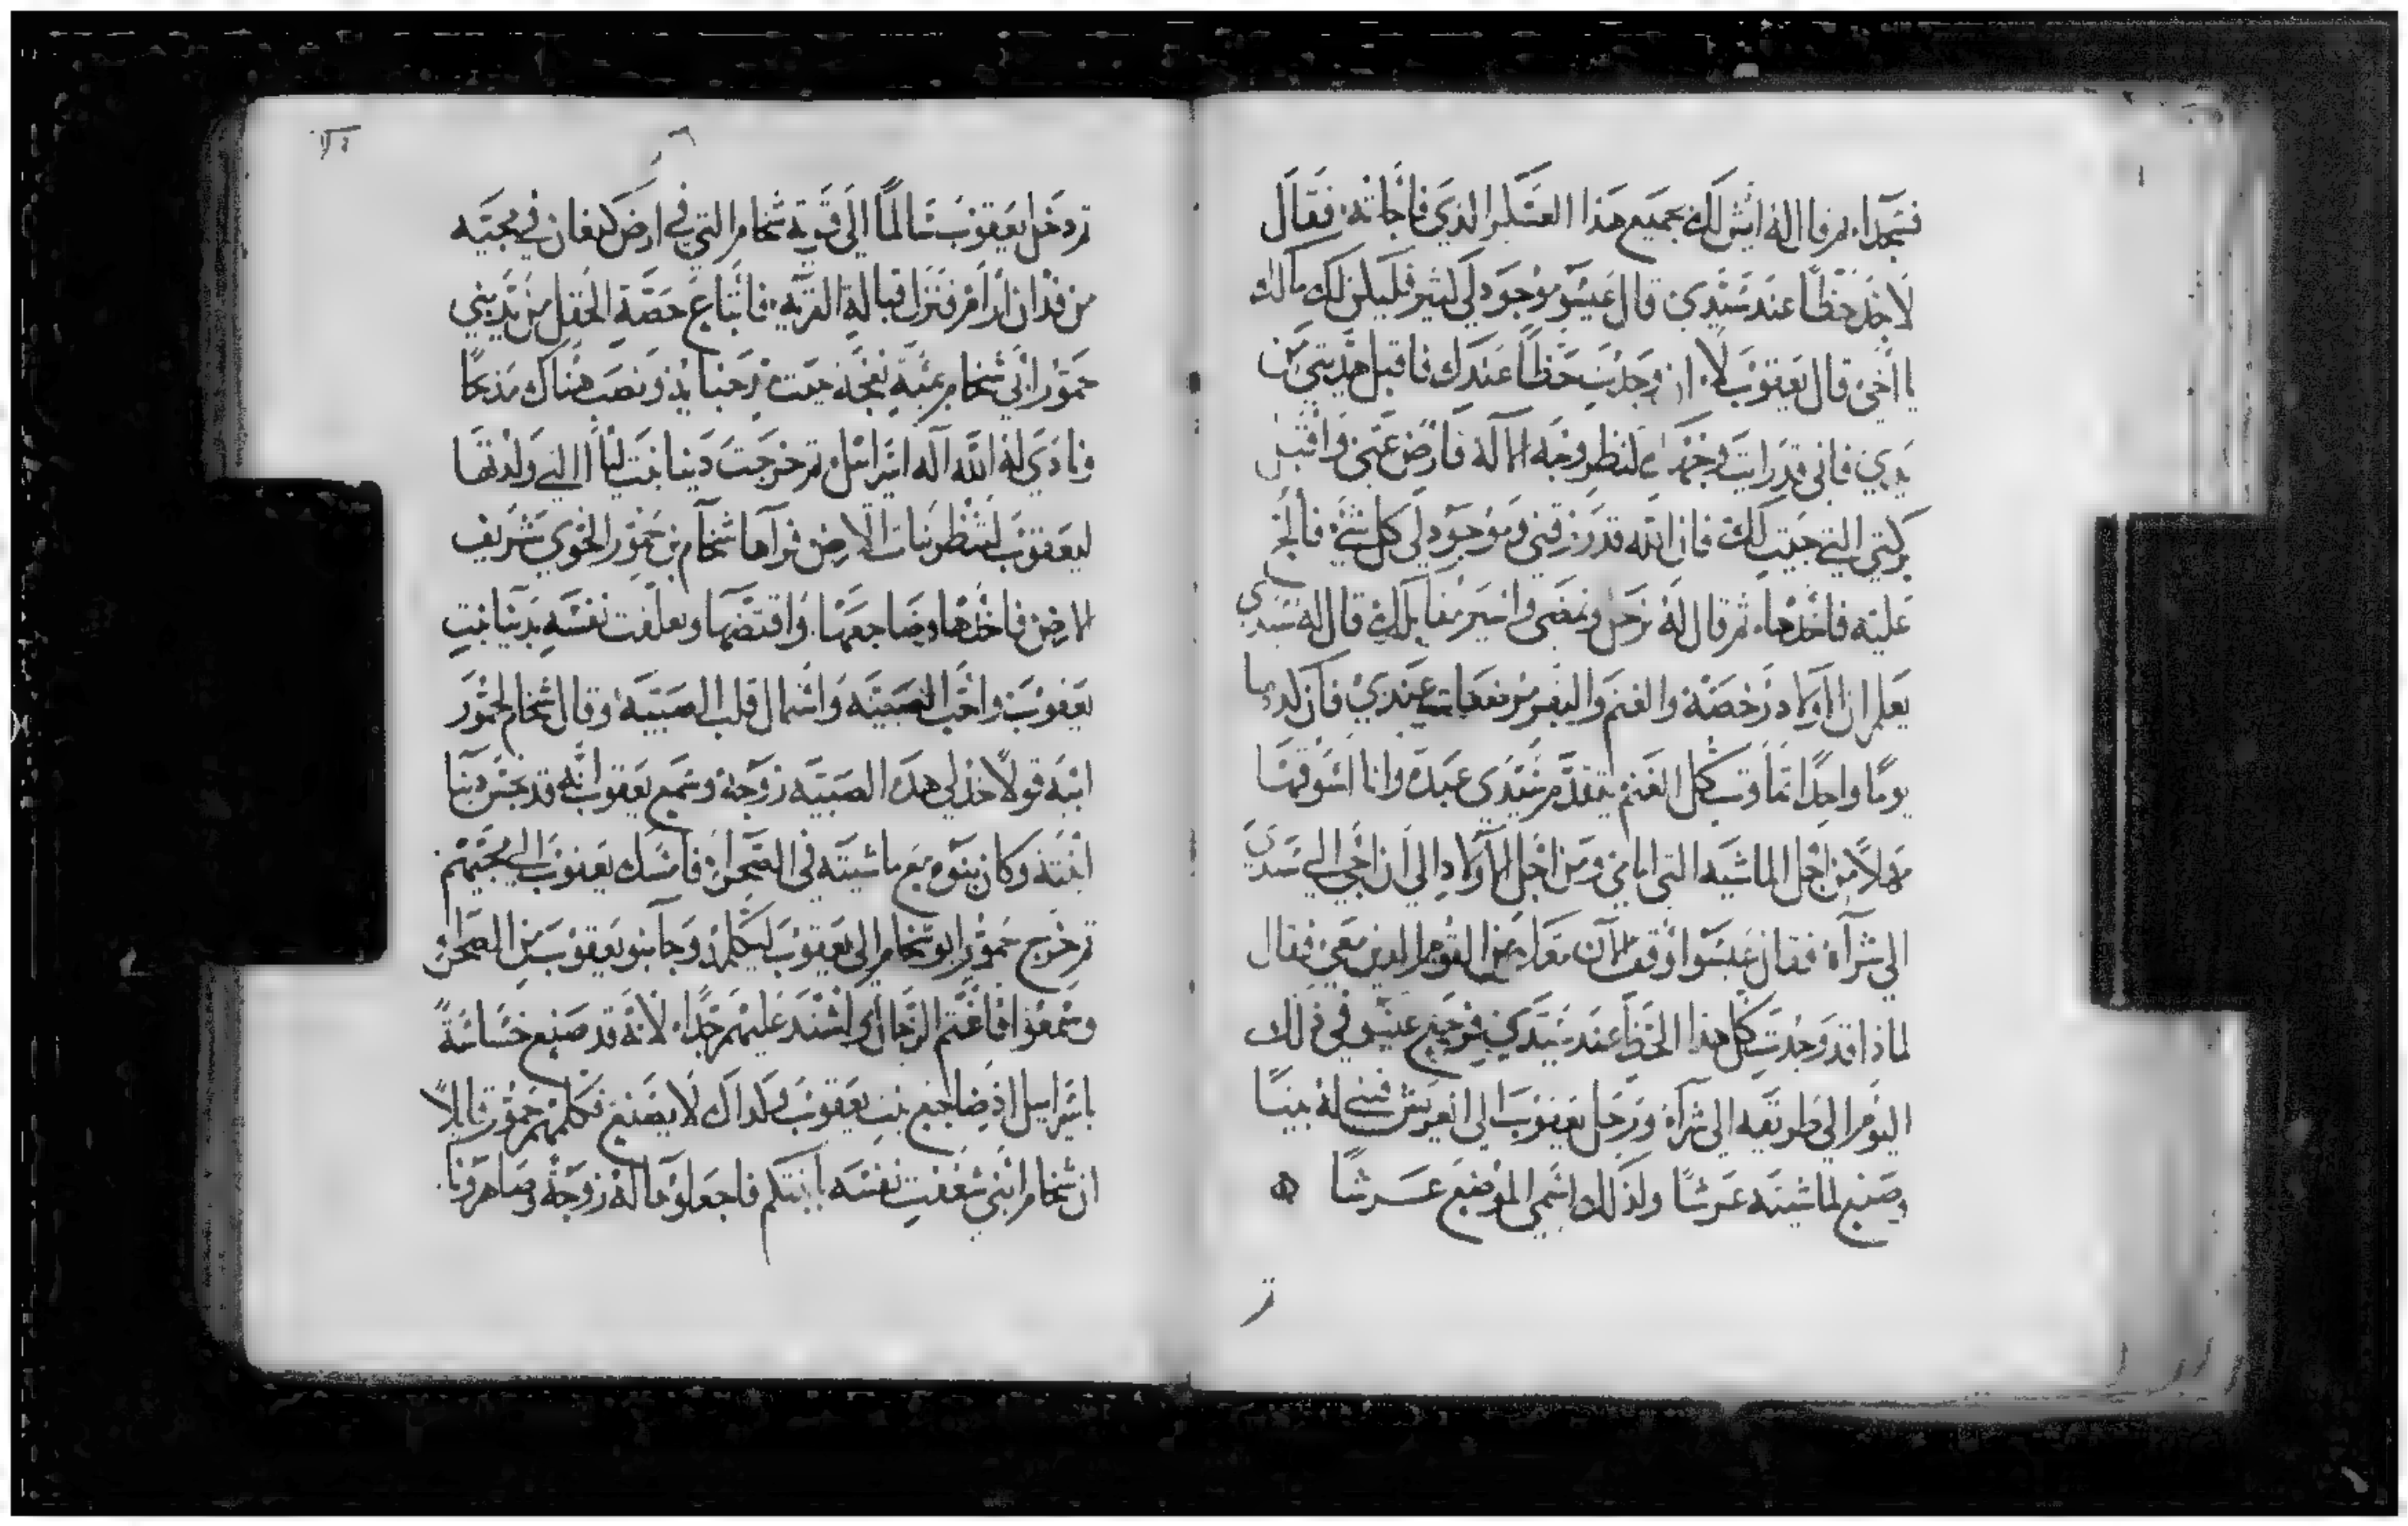 فسجدا، ثم قال له ايش لك بجميع هذا العسكر الذي فاجاته، فقال
لاجد حظا عند سيدي قال عيسو موجود لي كثير فليكن لك مالك
يا اخي قال يعقوب لا، ان وجدت حظا عندك فاقبل هديتي من
يدي فاني قد رايت وجهك كنظر وجه الاله فارض عني واقبل
بركتي التي جبت لك فان الله قد رزقني وموجود لي كل شي، فالح
عليه فاخذها، ثم قال له نرحل ونمضي واسير مقابلك قال له سيدي
يعلم ان الاولاد رخصة والغنم والبقر مرضعات عندي فان كدوها
يوما واحدا تماوتت كل الغنم يتقدم سيدي عبده وانا اسوقها
مهلا من اجل الماشيه التي امامي ومن اجل الاولاد الي ان اجي الي سيدي
الي شرآة فقال عيسوا اوقف الآن معك من القوم الذين معي فقال
لماذا قد وجدت كل هذا الحظ عند سيدي فرجع عيسو في ذلك
اليوم الي طريقه الي شرآة ورحل يعقوب الي العريش فبني له بيتا
وصنع لماشيته عرشا ولذلك اسمي الموضع عرشا
ثم
ثم دخل يعقوب سالما الي قرية شخام التي في ارض كنعان في مجيه
من فدان ارام فنزل قبالة القريه، فابتاع حصة الحقل من يد بني
حمور ابي شخام بمية نعجة حيث نصب خباه ونصب هناك مذبحا
ونادي له الله اله اسرائيل ثم خرجت دينا بنت ليا التي ولدتها
ليعقوب لتنظر بنات الارض فرآها شخام بن حمور الحوي شريف
الارض فاخذها وضاجعها واقتضها وتعلقت نفسه بدينا بنت
يعقوب واحب الصبيه واشمال قلب الصبيه وقال شخام لحمور
ابيه قولا خذ لي هده الصبيه زوجة وسمع يعقوب انه قد نجس دينا
ابنته وكان بنوه مع ماشيته في الصحرا، فامسك يعقوب الي مجيهم
ثم خرج حمور ابو شخام الي يعقوب ليكلمه وجآ بنو يعقوب من الصحرا
وسمعوا فاغتم الرجال واشتد عليهم جدا، لانه قد صنع خساسة
باسراييل اذ ضاجع بنت يعقوب وكداك لا يصنع فكلمهم حمور قايلا
ان شخام ابني شغفت نفسه بابنتكم فاجعلوها له زوجة وصاهرونا